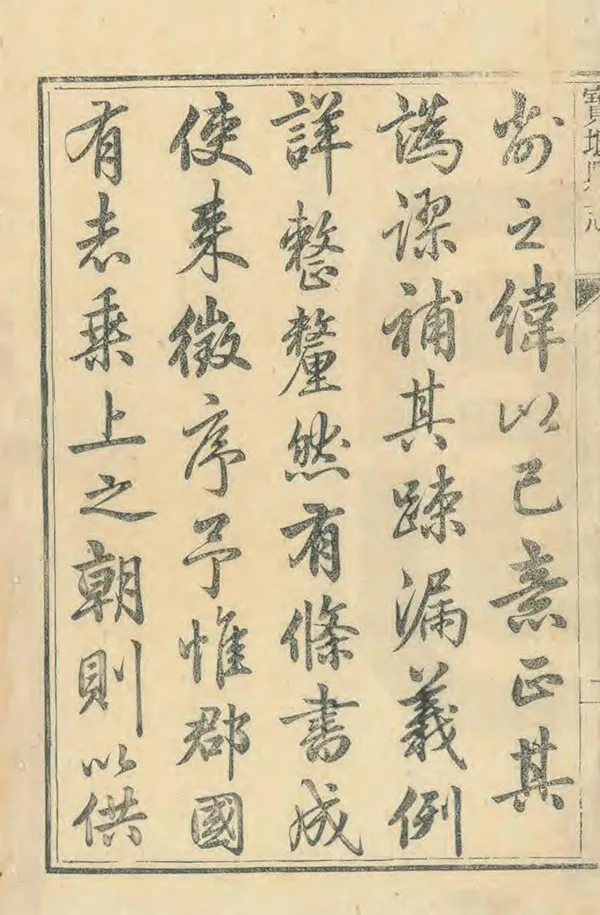 寶坻縣志
之緯以己意正其
譌謬補其踈漏義例
詳整釐然有條書成
使來徵序予惟郡國
有志乘上之朝則以供